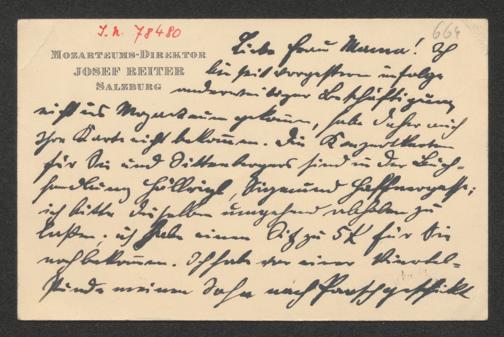 I.N. 78480
664
MOZARTEUMS-DIREKTOR
JOSEF REITER
SALZBURG
Liebe Frau Mama! Ich
bin seit vorgestern infolge
anderweitiger Beschäftigung
nicht ins Mozarteum gekommen, habe daher auch
Ihre Karte nicht bekommen. Die Konzertkarten
für Sie und Dittenbergers sind in der Buch-
handlung Höllrigl, Sigmund Haffnergasse;
ich bitte dieselben umgehend abholen zu
lassen; ich habe einen Sitz zu 5 K für Sie
noch bekommen. Ich habe vor einer Viertel-
stunde meinen Sohn nach Parsch geschickt